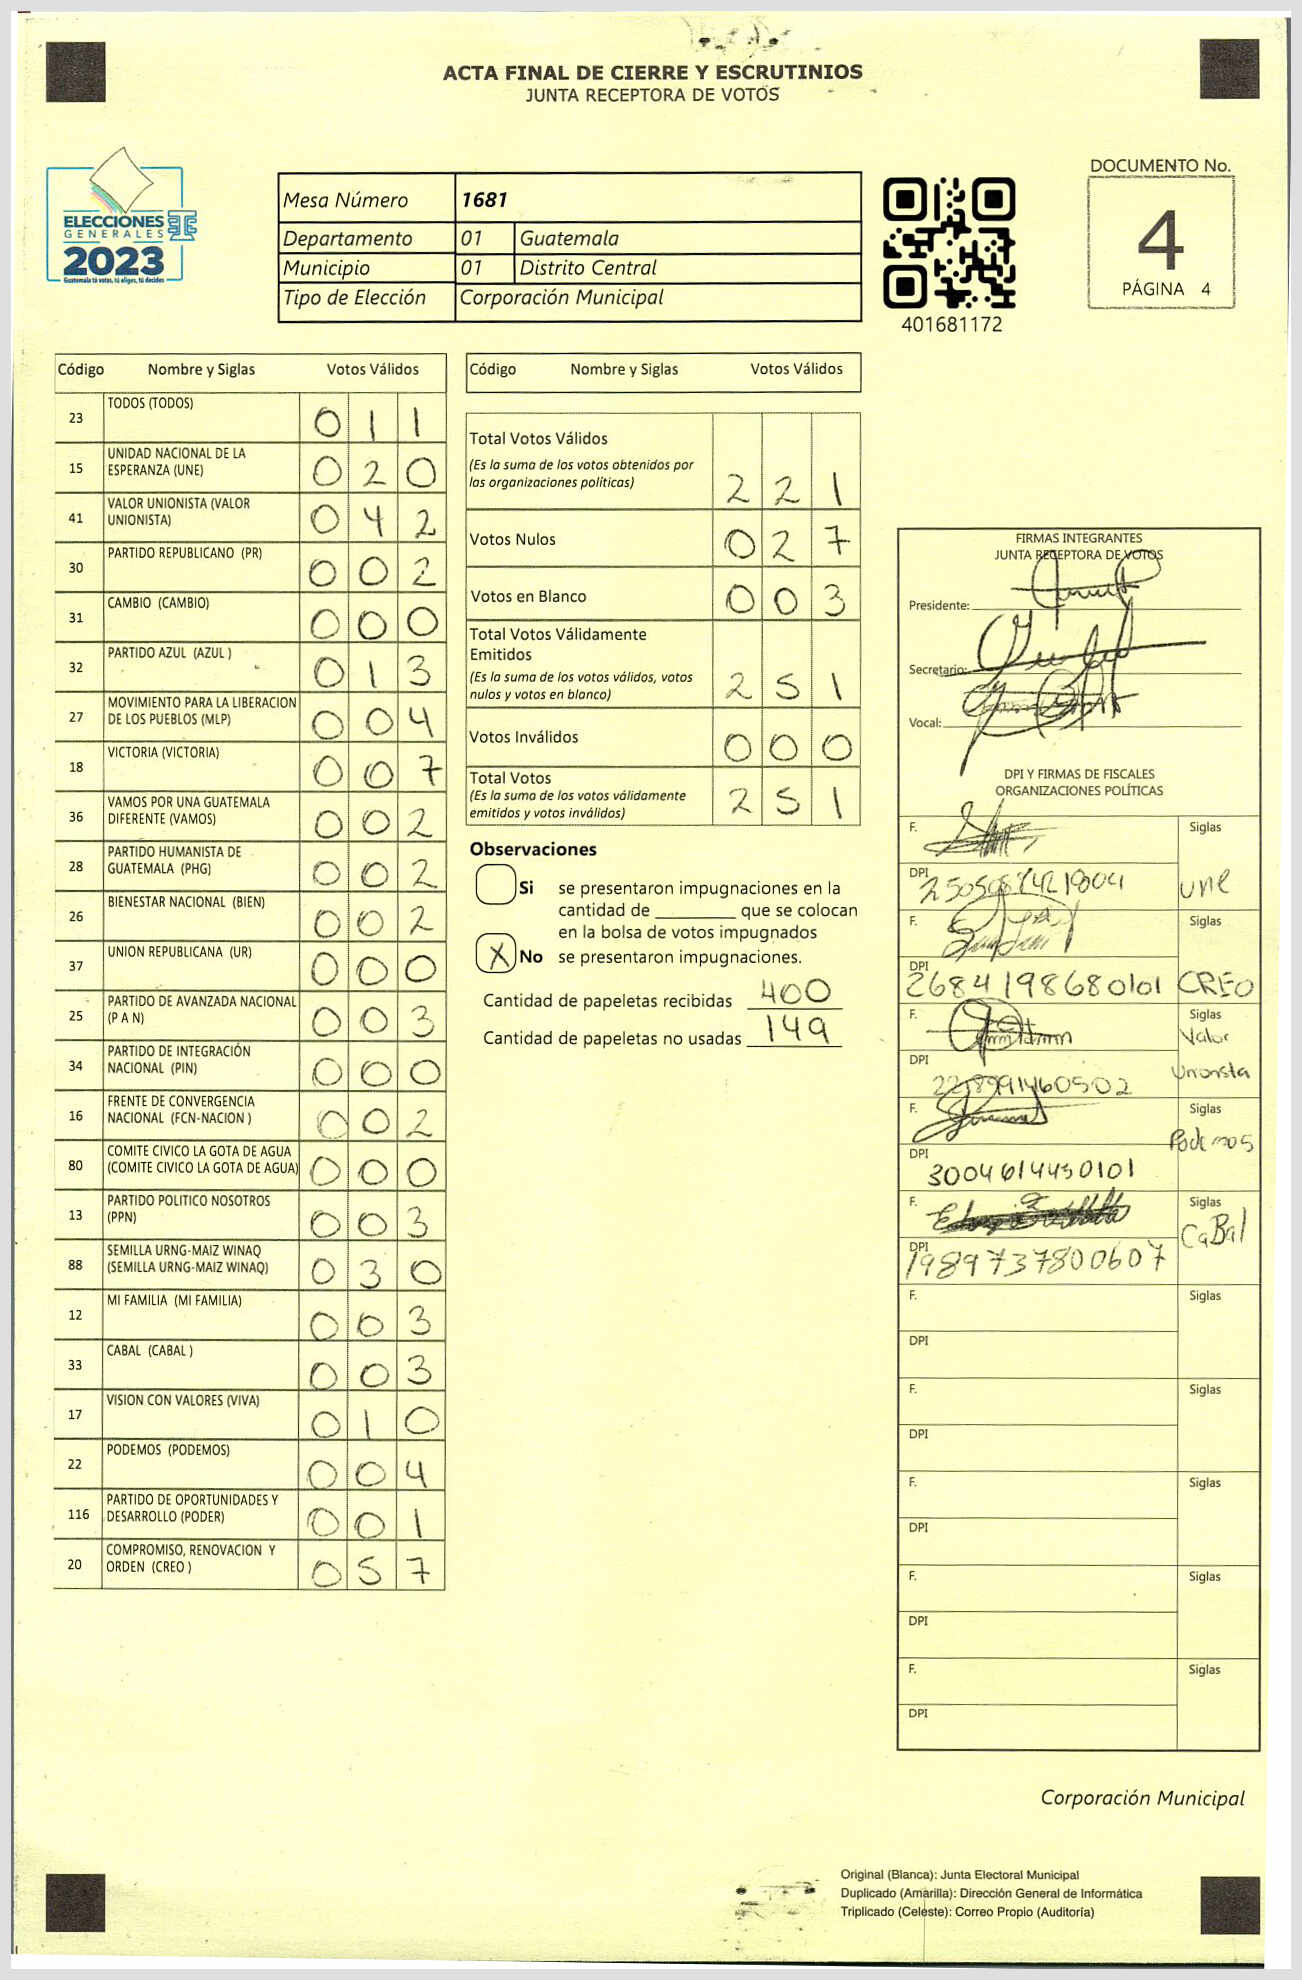 ACTA FINAL DE CIERRE Y ESCRUTINIOS
JUNTA RECEPTORA DE VOTOS
ELECCIONES
GENERALES
2023
Guatemala tú votas, tú eliges, tú decides
Mesa Número 1681
Departamento 01 Guatemala
Municipio 01 Distrito Central
Tipo de Elección Corporación Municipal
401681172
DOCUMENTO No.
4
PÁGINA 4
Código Nombre y Siglas Votos Válidos
23 TODOS (TODOS) 0 1 1
15 UNIDAD NACIONAL DE LA
ESPERANZA (UNE) 0 2 0
41 VALOR UNIONISTA (VALOR
UNIONISTA) 0 4 2
30 PARTIDO REPUBLICANO (PR) 0 0 2
31 CAMBIO (CAMBIO) 0 0 0
32 PARTIDO AZUL (AZUL ) 0 1 3
27 MOVIMIENTO PARA LA LIBERACION
DE LOS PUEBLOS (MLP) 0 0 4
18 VICTORIA (VICTORIA) 0 0 7
36 VAMOS POR UNA GUATEMALA
DIFERENTE (VAMOS) 0 0 2
28 PARTIDO HUMANISTA DE
GUATEMALA (PHG) 0 0 2
26 BIENESTAR NACIONAL (BIEN) 0 0 2
37 UNION REPUBLICANA (UR) 0 0 0
25 PARTIDO DE AVANZADA NACIONAL
(P A N) 0 0 3
34 PARTIDO DE INTEGRACIÓN
NACIONAL (PIN) 0 0 0
16 FRENTE DE CONVERGENCIA
NACIONAL (FCN-NACION ) 0 0 2
80 COMITE CIVICO LA GOTA DE AGUA
(COMITE CIVICO LA GOTA DE AGUA) 0 0 0
13 PARTIDO POLITICO NOSOTROS
(PPN) 0 0 3
88 SEMILLA URNG-MAIZ WINAQ
(SEMILLA URNG-MAIZ WINAQ) 0 3 0
12 MI FAMILIA (MI FAMILIA) 0 0 3
33 CABAL (CABAL ) 0 0 3
17 VISION CON VALORES (VIVA) 0 1 0
22 PODEMOS (PODEMOS) 0 0 4
116 PARTIDO DE OPORTUNIDADES Y
DESARROLLO (PODER) 0 0 1
20 COMPROMISO, RENOVACION Y
ORDEN (CREO ) 0 5 7
Código Nombre y Siglas Votos Válidos
Total Votos Válidos
(Es la suma de los votos obtenidos por
las organizaciones políticas) 2 2 1
Votos Nulos 0 2 7
Votos en Blanco 0 0 3
Total Votos Válidamente
Emitidos
(Es la suma de los votos válidos, votos
nulos y votos en blanco) 2 5 1
Votos Inválidos 0 0 0
Total Votos
(Es la suma de los votos válidamente
emitidos y votos inválidos) 2 5 1
Observaciones
Si se presentaron impugnaciones en la
cantidad de ________ que se colocan
en la bolsa de votos impugnados
X No se presentaron impugnaciones.
Cantidad de papeletas recibidas 400
Cantidad de papeletas no usadas 149
FIRMAS INTEGRANTES
JUNTA RECEPTORA DE VOTOS
Presidente:
Secretario:
Vocal:
DPI Y FIRMAS DE FISCALES
ORGANIZACIONES POLÍTICAS
F. Siglas
DPI une
F. Siglas
DPI 2684198680101 CREO
F. Siglas
Valor
DPI Unionista
F. Siglas
Podemos
DPI 3004614450101
F. Siglas
CaBal
DPI 1989737800607
F. Siglas
DPI
F. Siglas
DPI
F. Siglas
DPI
F. Siglas
DPI
F. Siglas
DPI
Corporación Municipal
Original (Blanca): Junta Electoral Municipal
Duplicado (Amarilla): Dirección General de Informática
Triplicado (Celeste): Correo Propio (Auditoría)